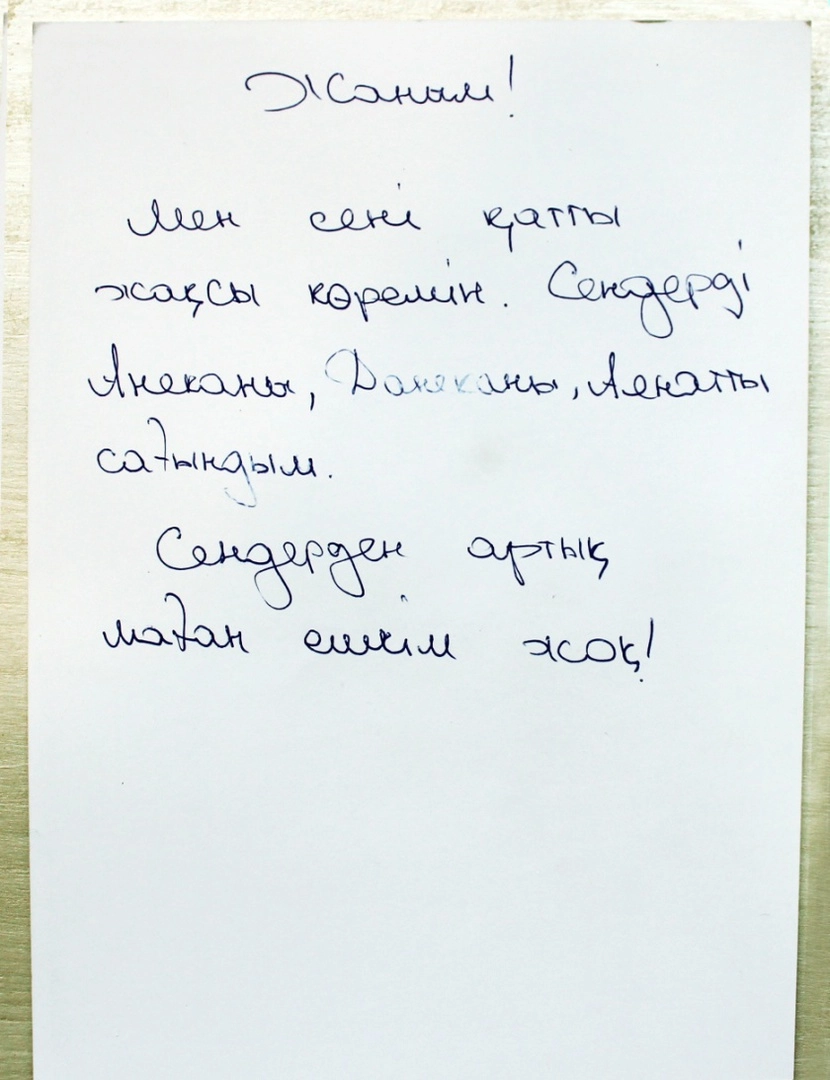 Жаным!
Мен сені қатты
жақсы көремін. Сендерді
Анеканы, Данеканы, Аянатты
сағындым.
Сендерден артық
маған ешкім жоқ!